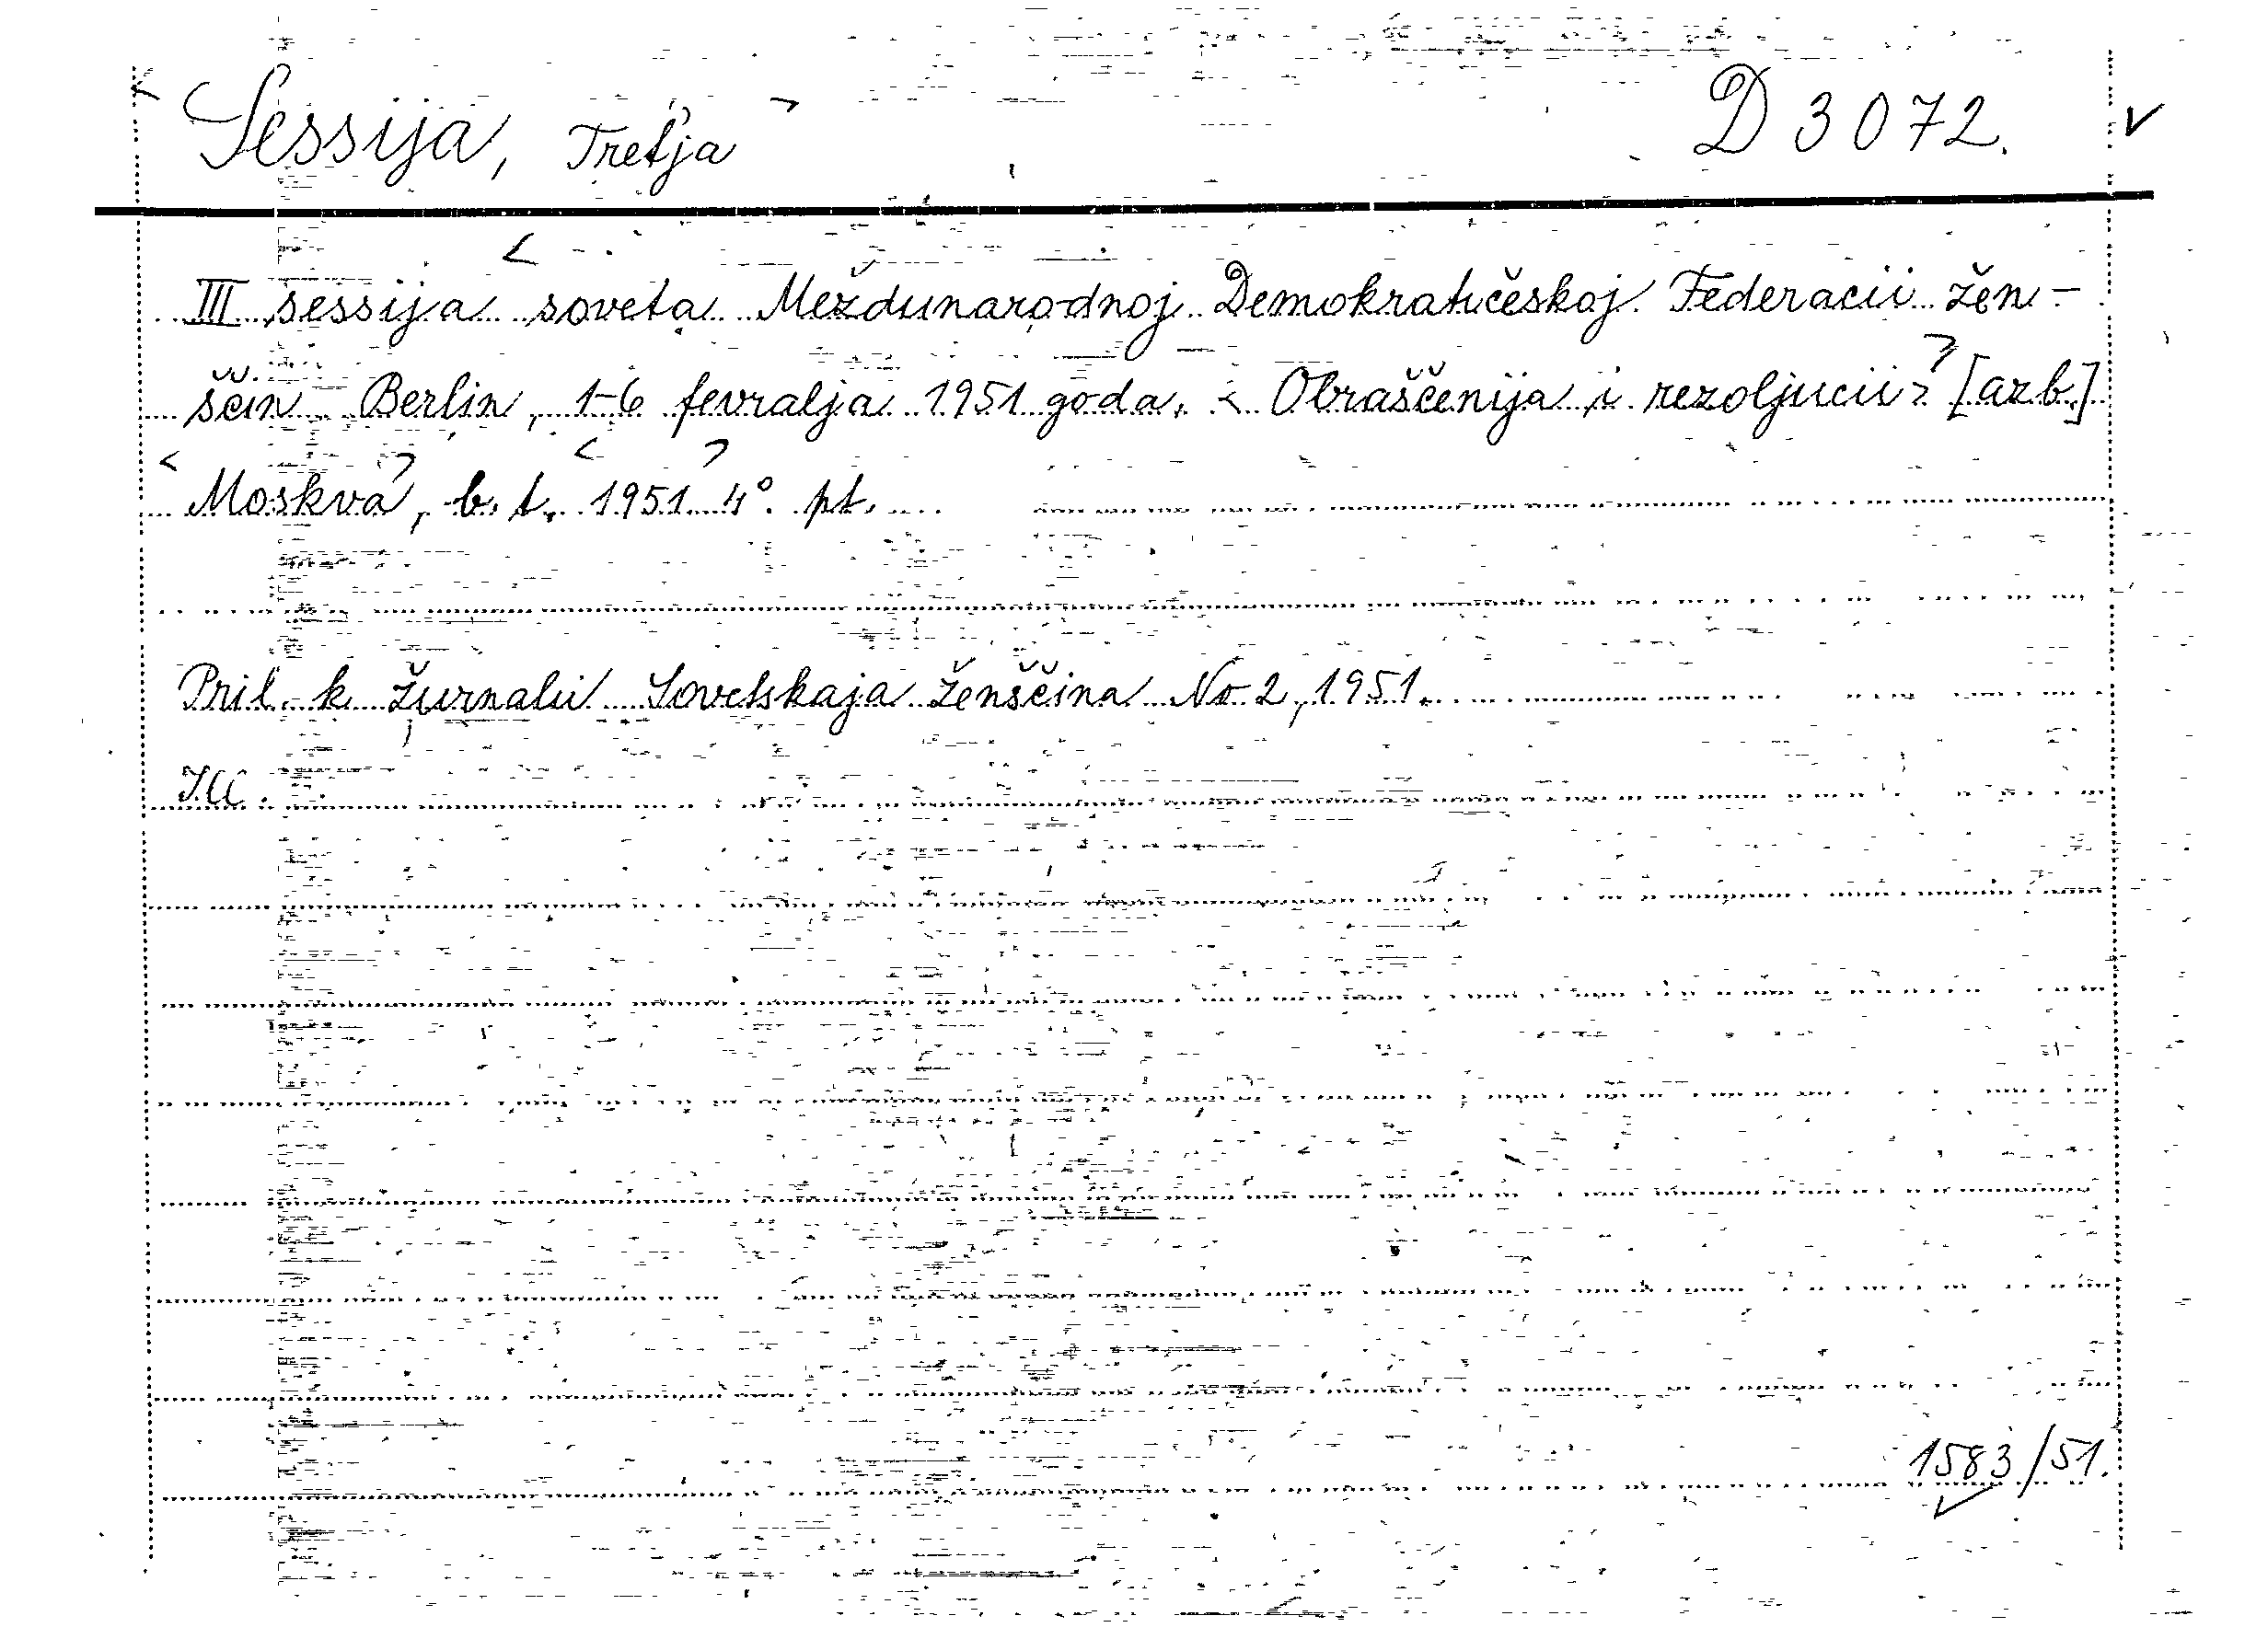 Sessija, Tret'ja D 3072.
III sessija soveta Meždunarodnoj Demokratičeskoj Federacii žen-
ščin Berlin, 1-6 fevralja 1951 goda. < Obraščenija i rezoljucii > [azb.]
<Moskva>, b. t. <1951> 4° pt.
Pril. k žurnalu Sovetskaja ženščina No 2, 1951.
1583/51.